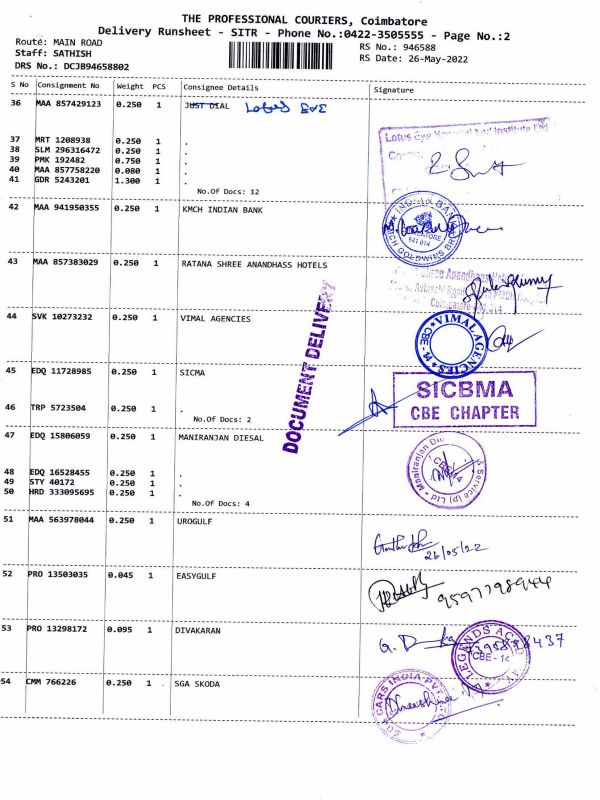 THE PROFESSIONAL COURIERS, Coimbatore
Delivery Runsheet - SITR - Phone No.:0422-3505555 - Page No.:2
Route: MAIN ROAD
Staff: SATHISH
DRS No.: DCJB94658802
RS No.: 946588
RS Date: 26-May-2022
S No Consignment No Weight PCS Consignee Details Signature
36 MAA 857429123 0.250 1 JUST DIAL Lotus EYE
37 MRT 1208938 0.250 1 .
38 SLM 296316472 0.250 1 .
39 PMK 192482 0.750 1 .
40 MAA 857758220 0.080 1 .
41 GDR 5243201 1.300 1 .
No.Of Docs: 12
Lotus Eye Hospital and Institute Ltd
42 MAA 941950355 0.250 1 KMCH INDIAN BANK
INDIAN BANK
641 014
43 MAA 857383029 0.250 1 RATANA SHREE ANANDHASS HOTELS
Shree Anandhass
44 SVK 10273232 0.250 1 VIMAL AGENCIES
VIMAL AGENCIES
CBE - 14
DOCUMENT DELIVERY
45 EDQ 11728985 0.250 1 SICMA
46 TRP 5723504 0.250 1 .
No.Of Docs: 2
SICBMA
CBE CHAPTER
47 EDQ 15806059 0.250 1 MANIRANJAN DIESAL
48 EDQ 16528455 0.250 1 .
49 STY 40172 0.250 1 .
50 HRD 333095695 0.250 1 .
No.Of Docs: 4
Maniranjan Service (p) Ltd
51 MAA 563978044 0.250 1 UROGULF
26/05/22
52 PRO 13503035 0.045 1 EASYGULF
9597798944
53 PRO 13298172 0.095 1 DIVAKARAN
LEGANDS
CBE - 14
54 CMM 766226 0.250 1 SGA SKODA
SGA CARS INDIA PVT. LTD